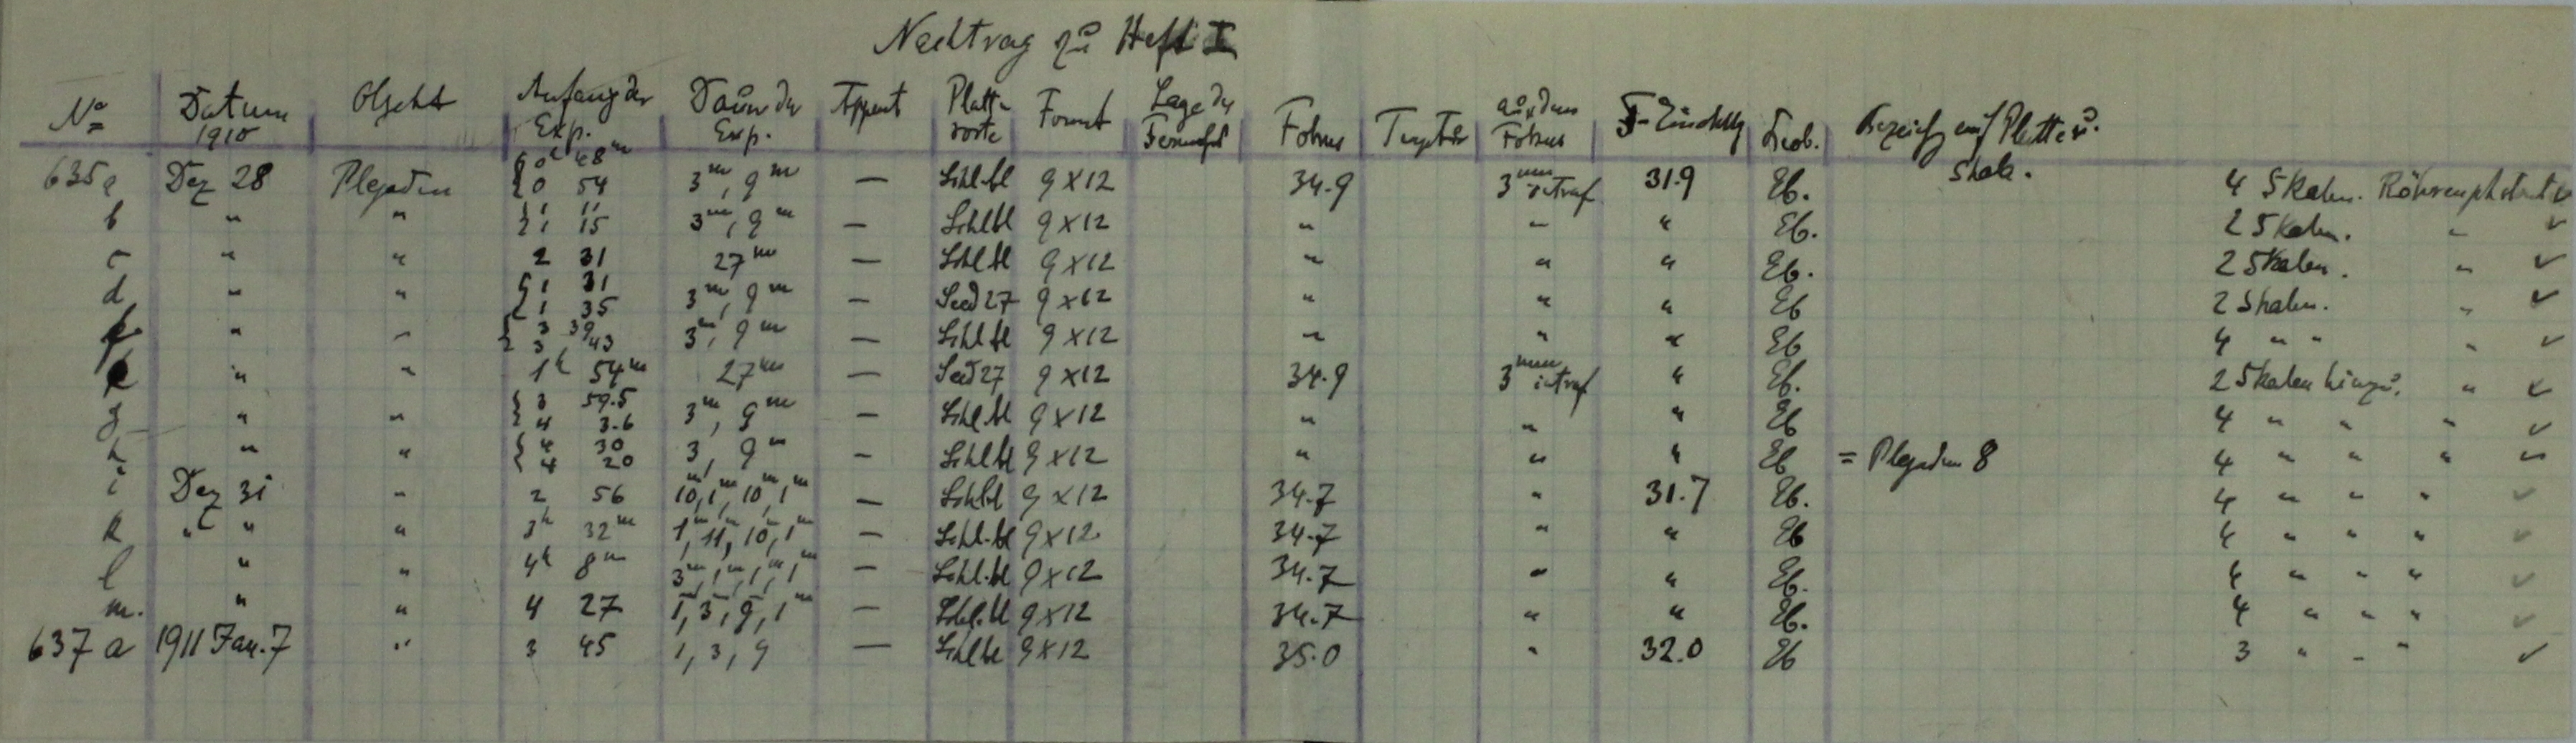 Nachtrag zu Heft I
No Datum 1910 Objekt Anfang der Exp. Dauer der Exp. Apparat Plattensorte Format Lage des Fernrohrs Fokus Temp. aus dem Fokus F-Einstellg Beob. Bezeichn. auf Platte u. Skala.
635a Dez 28 Plejaden { 0h 48m 0 54 3m, 9m — Schl.bl 9x12 34.9 3mm intraf 31.9 Eb. 4 Skalen. Röhrenphotom. ✓
b " " { 1 11 1 15 3m, 9m — Schlbl 9x12 " " " Eb. 2 Skalen. " ✓
c " " 2 31 27m — Schl.bl 9x12 " " " Eb. 2 Skalen. " ✓
d " " { 1 31 1 35 3m, 9m — Seed 27 9x12 " " " Eb 2 Skalen. " ✓
f " " { 3 39 3 43 3m, 9m — Schl.bl 9x12 " " " Eb 4 " " " ✓
e " " 1h 54m 27m — Seed 27 9x12 34.9 3mm intraf " Eb. 2 Skalen hinzu. " ✓
g " " { 3 59.5 4 3.6 3m, 9m — Schl.bl 9x12 " " " Eb 4 " " " ✓
h " " { 4 30 4 20 3, 9m — Schlbl 9x12 " " " Eb = Plejaden 8 4 " " " ✓
i Dez 31 " 2 56 10, 1m, 10m, 1m — Schlbl 9x12 34.7 " 31.7 Eb. 4 " " " ✓
k " " " 3h 32m 1m, 11m, 10m, 1m — Schl.bl 9x12 34.7 " " Eb 4 " " " ✓
l " " 4h 8m 3m, 1m, 1m, 1m — Schl.bl 9x12 34.7 " " Eb. 4 " " " ✓
m. " " 4 27 1, 3, 9, 1m — Schl.bl 9x12 34.7 " " Eb. 4 " " " ✓
637a 1911 Jan. 7 " 3 45 1, 3, 9 — Schlbl 9x12 35.0 " 32.0 Eb 3 " " " ✓